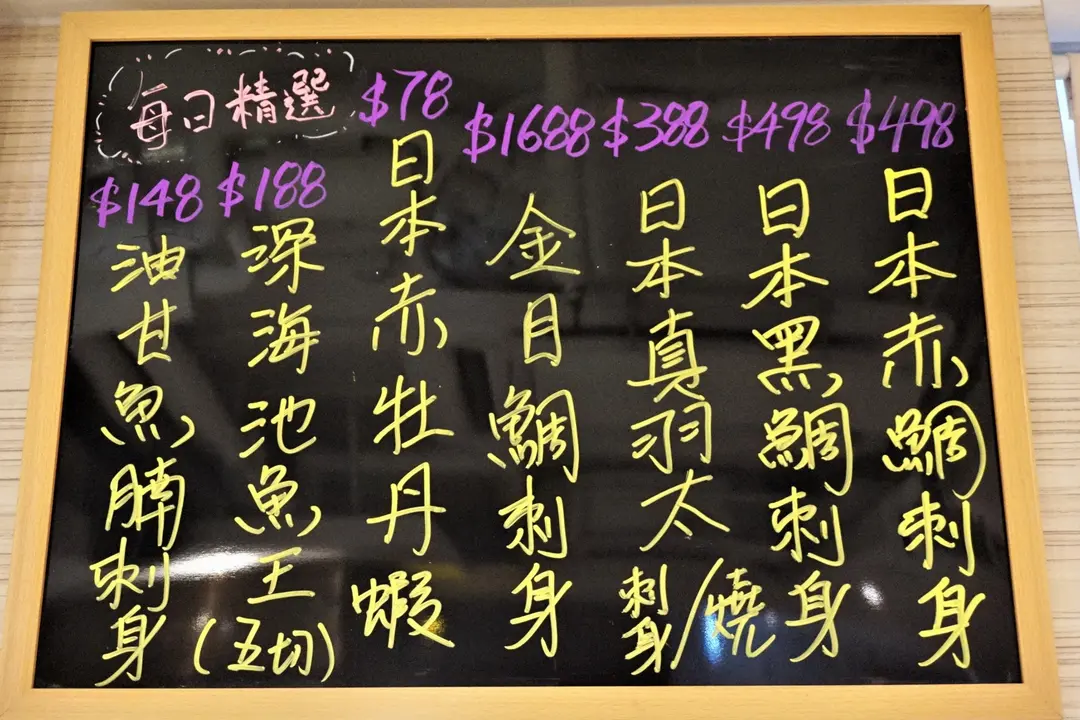 每日精選
$148
油甘魚腩刺身
$188
深海池魚王(五切)
$78
日本赤牡丹蝦
$1688
金目鯛刺身
$388
日本真羽太刺身/燒
$498
日本黑鯛刺身
$498
日本赤鯛刺身